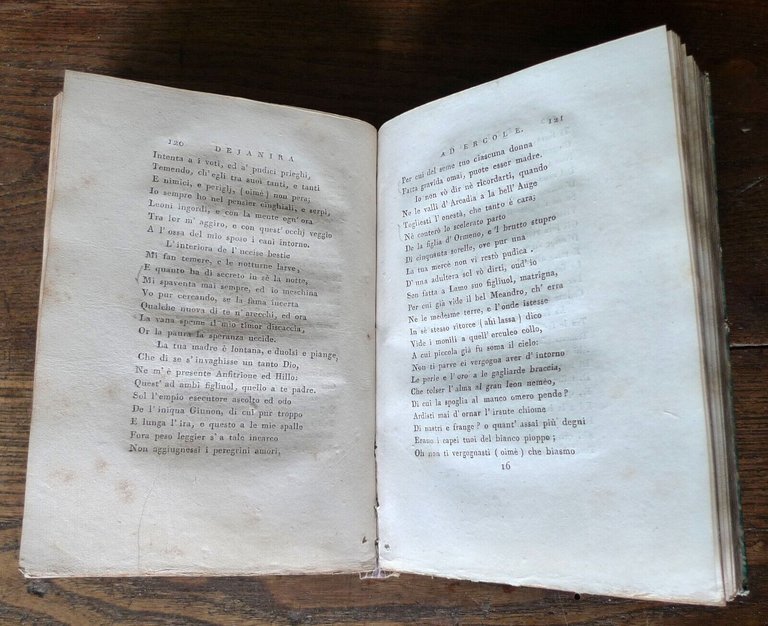 120 DEJANIRA
Intenta a i voti, ed a' pudici prieghi,
Temendo, ch' egli tra suoi tanti, e tanti
E nimici, e perigli (oimè) non pera;
Io sempre ho nel pensier cinghiali, e serpi,
Leoni ingordi, e con la mente ogn' ora
Tra lor m' aggiro, e con quest' occhj veggio
A l' ossa del mio sposo i cani intorno.
L' interiora de l' uccise bestie
Mi fan temere, e le notturne larve,
E quanto ha di secreto in sè la notte,
Mi spaventa mai sempre, ed io meschina
Vo pur cercando, se la fama incerta
Qualche nuova di te n' arecchi, ed ora
La vana speme il mio timor discaccia,
Or la paura la speranza uccide.
La tua madre è lontana, e duolsi e piange,
Che di se s' invaghisse un tanto Dio,
Ne m' è presente Anfitrione ed Hillo:
Quest' ad ambi figliuol, quello a te padre.
Sol l' empio esecutore ascolto ed odo
De l' iniqua Giunon, di cui pur troppo
E lunga l' ira, e questo a le mie spalle
Fora peso leggier s' a tale incarco
Non aggiugnessi i peregrini amori,
AD ERCOLE. 121
Per cui del seme tuo ciascuna donna
Fatta gravida omai, puote esser madre.
Io non vò dir nè ricordarti, quando
Ne le valli d' Arcadia a la bell' Auge
Togliesti l' onestà, che tanto è cara;
Nè conterò lo scelerato parto
De la figlia d' Ormeno, e 'l brutto stupro
Di cinquanta sorelle, ove pur una
La tua mercè non vi restò pudica.
D' una adultera sol vò dirti, ond' io
Son fatta a Lamo suo figliuol, matrigna,
Per cui già vide il bel Meandro, ch' erra
Ne le medesme terre, e l' onde istesse
In sè stesso ritorce (ahi lassa) dico
Vide i monili a quell' erculeo collo,
A cui piccola già fu soma il cielo:
Non ti parve ei vergogna aver d' intorno
Le perle e l' oro a le gagliarde braccia,
Che tolser l' alma al gran leon nemeo,
Di cui la spoglia al manco omero pende?
Ardisti mai d' ornar l' iraute chiome
Di nastri e frange? o quant' assai più degni
Erano i capei tuoi del bianco pioppo;
Oh non ti vergognasti (oimè) che biasmo
16